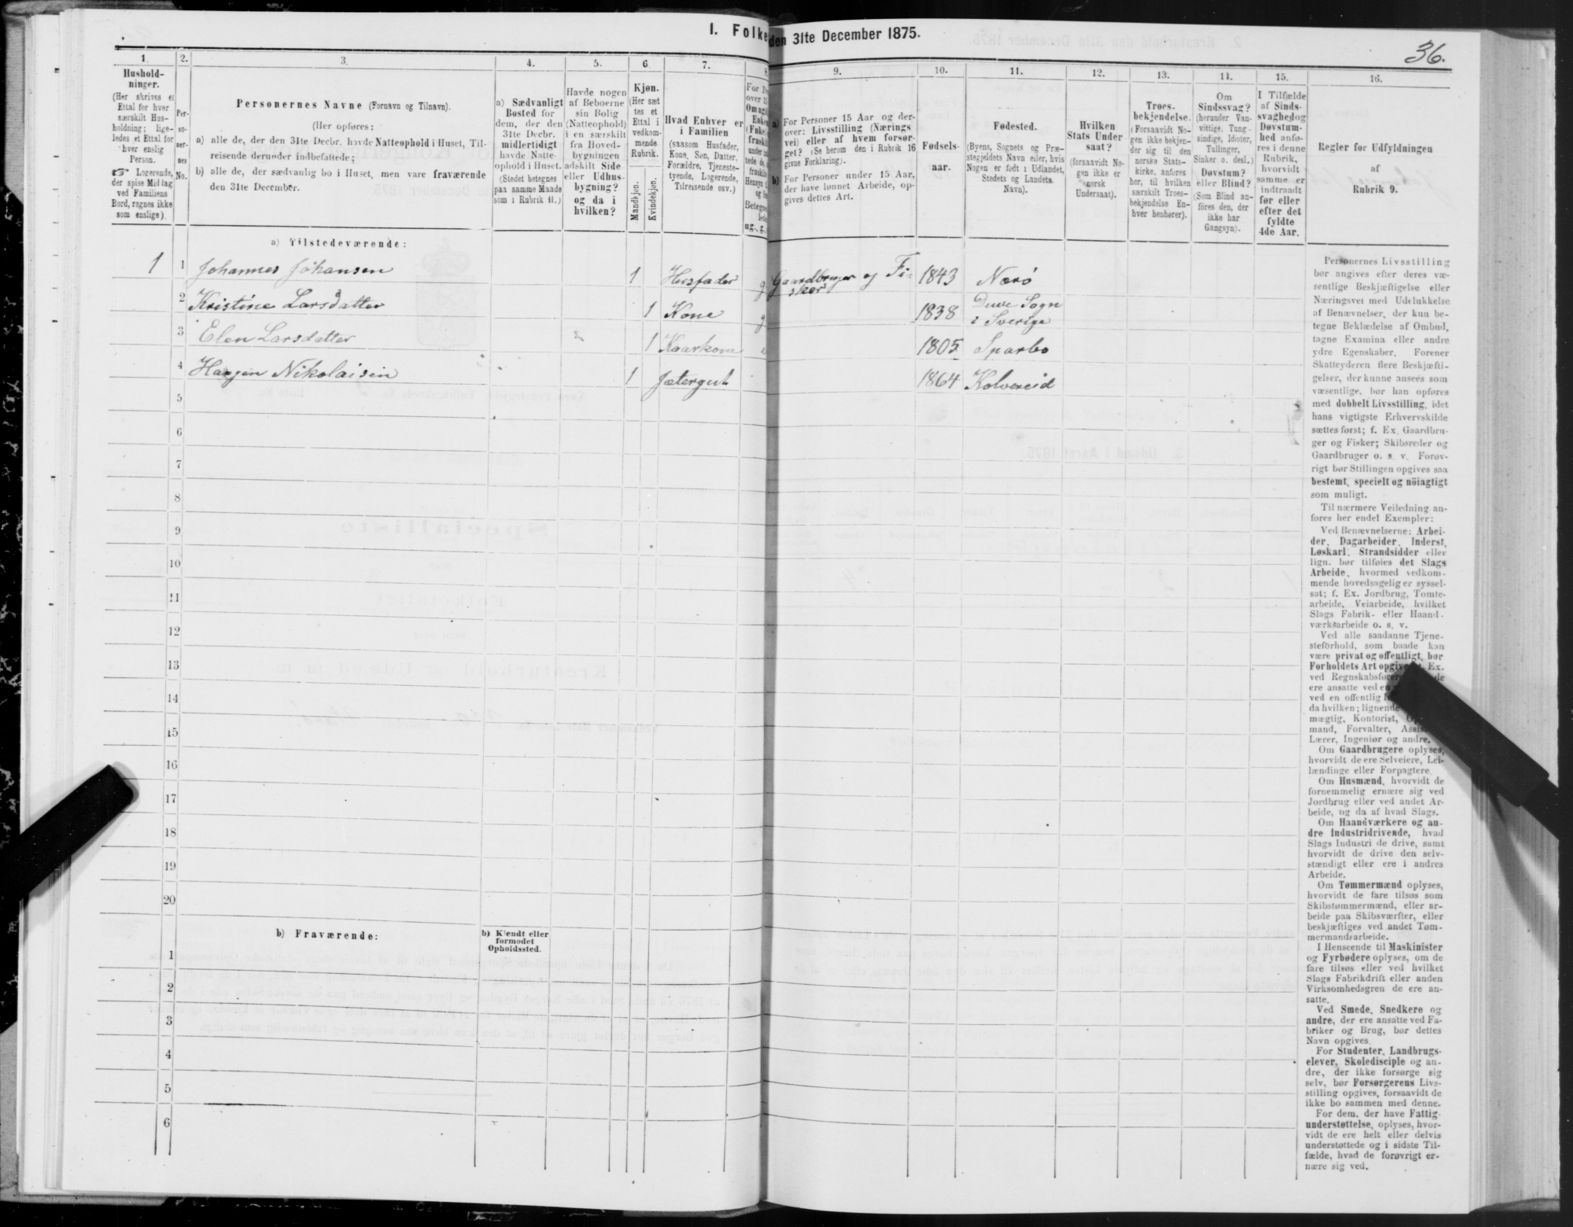 I. Folke den 31te December 1875.
36.
1.
Hushold-
ninger.
(Her skrives et
Ettal for hver
særskilt Hus-
holdning; lige-
ledes et Ettal for
hver enslig
Person.
☞ Logerende,
der spise Middag
ved Familiens
Bord, regnes ikke
som enslige).
2.
Per-
so-
ner-
nes
No.
3.
Personernes Navne (Fornavn og Tilnavn).
(Her opføres:
a) alle de, der den 31te Decbr. havde Natteophold i Huset, Til-
reisende derunder indbefattede;
b) alle de, der sædvanlig bo i Huset, men vare fraværende
den 31te December.
4.
a) Sædvanligt
Bosted for
dem, der den
31te Decbr.
midlertidigt
havde Natte-
ophold i Huset.
(Stedet betegnes
paa samme Maade
som i Rubrik 11.)
5.
Havde nogen
af Beboerne
sin Bolig
(Natteophold)
i en særskilt
fra Hoved-
bygningen
adskilt Side
eller Udhus-
bygning?
og da i
hvilken?
6
Kjøn.
(Her sæt
tes et
Ettal i
vedkom-
mende
Rubrik.
Mandkjøn.
Kvindekjøn.
7.
Hvad Enhver er
i Familien
(saasom Husfader,
Kone, Søn, Datter,
Forældre, Tjeneste-
tyende, Logerende,
Tilreisende osv.)
8
9.
a) For Personer 15 Aar og der-
over: Livsstilling (Nærings
vei) eller af hvem forsør-
get? (Se herom den i Rubrik 16
givne Forklaring).
b) For Personer under 15 Aar,
der have lønnet Arbeide, op-
gives dettes Art.
10.
Fødsels-
aar.
11.
Fødested.
(Byens, Sognets og Præ-
stegjeldets Navn eller, hvis
Nogen er født i Udlandet,
Stedets og Landets
Navn).
12.
Hvilken
Stats Under
saat?
(forsaavidt No-
gen ikke er
norsk
Undersaat).
13.
Troes-
bekjendelse.
(Forsaavidt No-
gen ikke bekjen-
der sig til den
norske Stats-
kirke, anføres
her, til hvilken
særskilt Troes-
bekjendelse En-
hver henhører).
14.
Om
Sindssvag?
(herunder Van-
vittige, Tung-
sindige, Idioter,
Tullinger,
Sinker o. desl.)
Døvstum?
eller Blind?
(Som Blind an-
føres den, der
ikke har
Gangsyn).
15.
I Tilfælde
af Sinds-
svaghed og
Døvstum-
hed anfø-
res i denne
Rubrik,
hvorvidt
samme er
indtraadt
før eller
efter det
fyldte
4de Aar.
16.
Regler for Udfyldningen
af
Rubrik 9.
a) Tilstedeværende:
1 1 Johannes Johansen 1 Husfader g Gaardbruger og Fi-
sker 1843 Nærø
2 Kristine Larsdatter 1 Kone g 1838 Duve Sogn
i Sverige
3 Elen Larsdatter 1 Kaarkone e 1805 Sparbo
4 Hagen Nikolaisen 1 Jætergut 1864 Kolvereid
5
6
7
8
9
10
11
12
13
14
15
16
17
18
19
20
b) Fraværende:
b) Kjendt eller
formodet
Opholdssted.
1
2
3
4
5
6
Personernes Livsstilling
bør angives efter deres væ-
sentlige Beskjæftigelse eller
Næringsvei med Udelukkelse
af Benævnelser, der kun be-
tegne Beklædelse af Ombud,
tagne Examina eller andre
ydre Egenskaber. Forener
Skatteyderen flere Beskjæfti-
gelser, der kunne ansees som
væsentlige, bør han opføres
med dobbelt Livsstilling, idet
hans vigtigste Erhvervskilde
sættes først; f. Ex. Gaardbru-
ger og Fisker; Skibsreder og
Gaardbruger o. s. v. Forøv-
rigt bør Stillingen opgives saa
bestemt, specielt og nöiagtigt
som muligt.
Til nærmere Veiledning an-
føres her endel Exempler:
Ved Benævnelserne: Arbei-
der, Dagarbeider, Inderst,
Løskarl, Strandsidder eller
lign. bør tilføies det Slags
Arbeide, hvormed vedkom-
mende hovedsagelig er syssel-
sat; f. Ex. Jordbrug, Tomte-
arbeide, Veiarbeide, hvilket
Slags Fabrik- eller Haand-
værksarbeide o. s. v.
Ved alle saadanne Tjene-
steforhold, som baade kan
være privat og offentligt, bør
Forholdets Art Ex.
ved
ere ansatte ved
ved en offentlig
da hvilken; lignende
mægtig, Kontorist,
mand, Forvalter,
Lærer, Ingeniør og andre.
Om Gaardbrugere oplyses,
hvorvidt de ere Selveiere, Lei-
lændinge eller Forpagtere.
Om Husmænd, hvorvidt de
fornemmelig ernære sig ved
Jordbrug eller ved andet Ar-
beide, og da af hvad Slags.
Om Haandværkere og an-
dre Industridrivende, hvad
Slags Industri de drive, samt
hvorvidt de drive den selv-
stændigt eller ere i andres
Arbeide.
Om Tømmermænd oplyses,
hvorvidt de fare tilsøs som
Skibstømmermænd, eller ar-
beide paa Skibsværfter, eller
beskjæftiges ved andet Tøm-
mermandsarbeide.
I Henseende til Maskinister
og Fyrbødere oplyses, om de
fare tilsøs eller ved hvilket
Slags Fabrikdrift eller anden
Virksomhedsgren de ere an-
satte.
Ved Smede, Snedkere og
andre, der ere ansatte ved Fa-
briker og Brug, bør dettes
Navn opgives.
For Studenter, Landbrugs-
elever, Skoledisciple og an-
dre, der ikke forsørge sig
selv, bør Forsørgerens Livs-
stilling opgives, forsaavidt de
ikke bo sammen med denne.
For dem, der have Fattig-
understøttelse, oplyses, hvor-
vidt de ere helt eller delvis
understøttede og i sidste Til-
fælde, hvad de forøvrigt er-
nære sig ved.